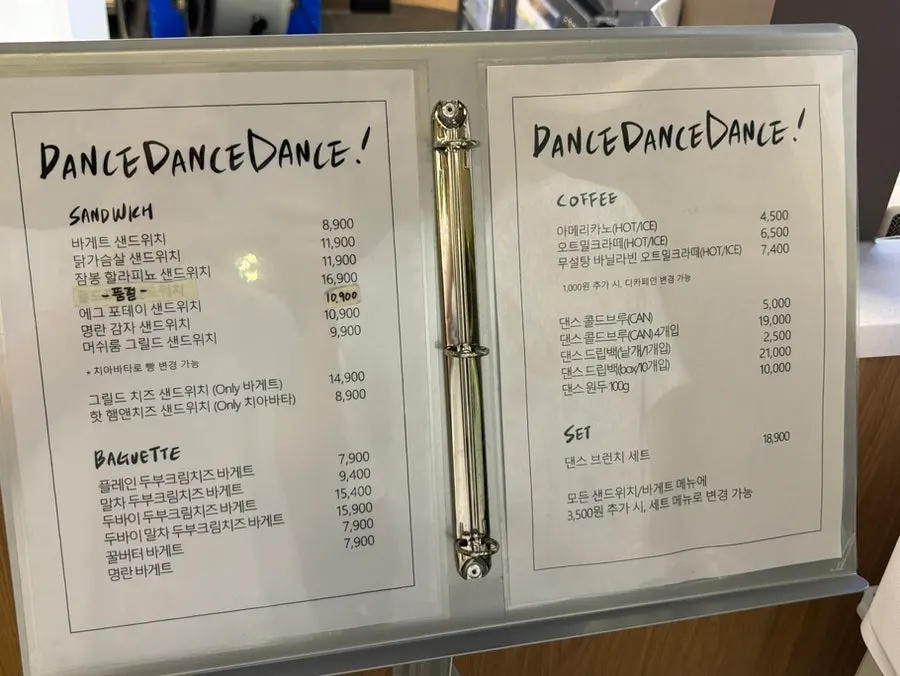 DANCEDANCEDANCE!
SANDWICH
바게트 샌드위치 8,900
닭가슴살 샌드위치 11,900
잠봉 할라피뇨 샌드위치 11,900
-품절- 16,900
에그 포테이 샌드위치 10,900
명란 감자 샌드위치 10,900
머쉬룸 그릴드 샌드위치 9,900
* 치아바타로 빵 변경 가능
그릴드 치즈 샌드위치 (Only 바게트) 14,900
핫 햄앤치즈 샌드위치 (Only 치아바타) 8,900
BAGUETTE
플레인 두부크림치즈 바게트 7,900
말차 두부크림치즈 바게트 9,400
두바이 두부크림치즈 바게트 15,400
두바이 말차 두부크림치즈 바게트 15,900
꿀버터 바게트 7,900
명란 바게트 7,900
DANCEDANCEDANCE!
COFFEE
아메리카노(HOT/ICE) 4,500
오트밀크라떼(HOT/ICE) 6,500
무설탕 바닐라빈 오트밀크라떼(HOT/ICE) 7,400
1,000원 추가 시, 디카페인 변경 가능
댄스 콜드브루(CAN) 5,000
댄스 콜드브루(CAN) 4개입 19,000
댄스 드립백(낱개/1개입) 2,500
댄스 드립백(box/10개입) 21,000
댄스 원두 100g 10,000
SET
댄스 브런치 세트 18,900
모든 샌드위치/바게트 메뉴에
3,500원 추가 시, 세트 메뉴로 변경 가능